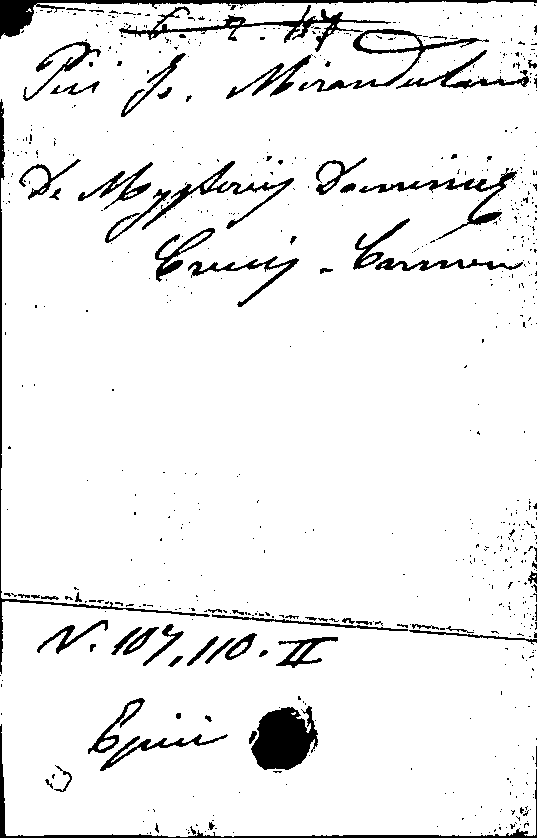 6. 2. 117
Pici Jo. Mirandulani
De Mysteriis Dominicę
Crucis - Carmen
N. 107, 110. II